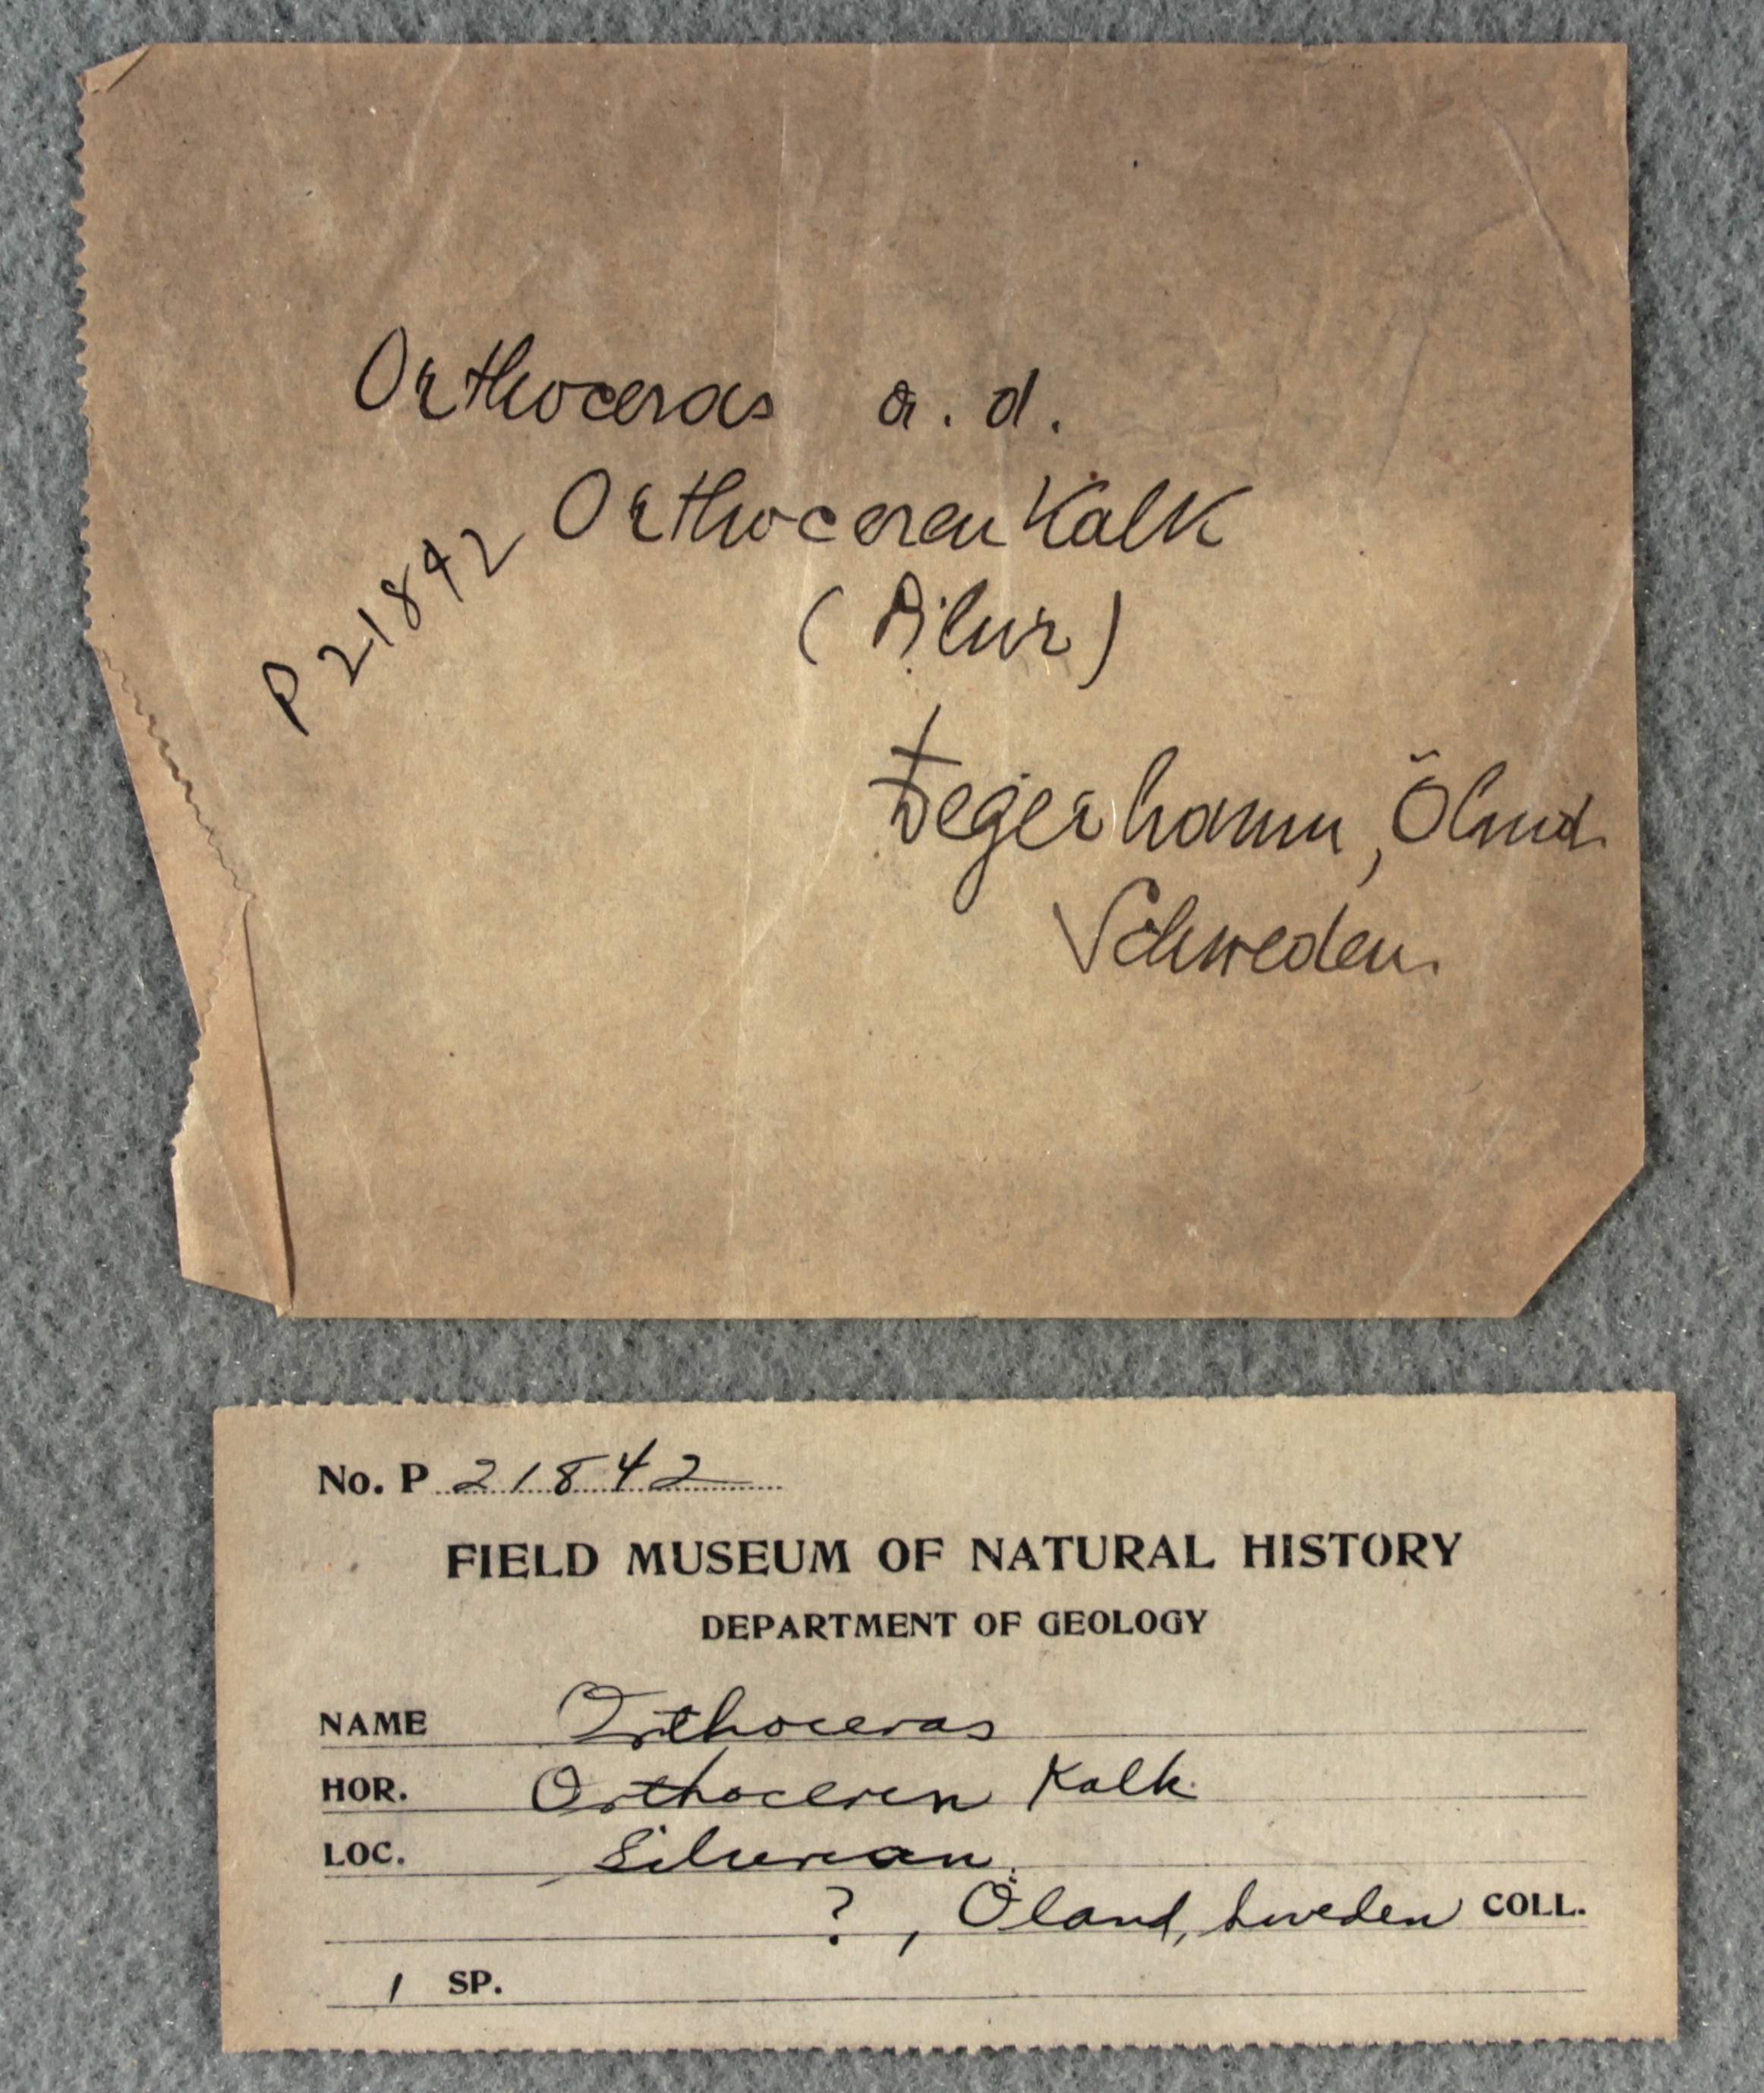 Orthoceras a. d.
Orthoceren Kalk
P 21842
(Silur)
Degerhamn, Öland
Schweden.
No. P 21842
FIELD MUSEUM OF NATURAL HISTORY
DEPARTMENT OF GEOLOGY
NAME Orthoceras
HOR. Orthoceren Kalk.
LOC. Silurian.
?, Öland, Sweden COLL.
1 SP.